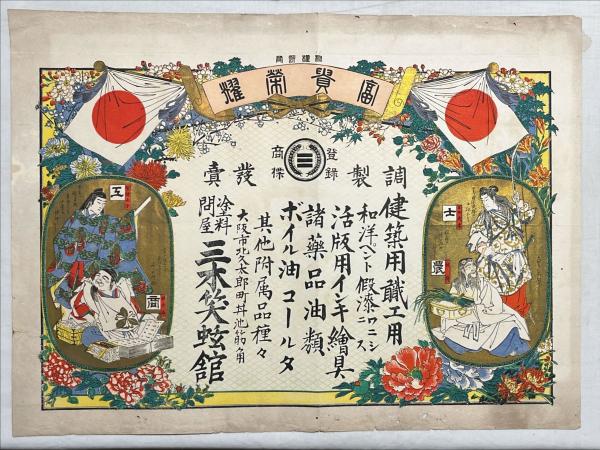 富貴榮耀
登録
商標
調製發賣
健築用職工用
和洋ペント 假漆ワニシニス
活版用インキ繪具
諸藥品油類
ボイル油コールタ
其他附属品種々
大阪市北久太郎町丼池筋角
塗料問屋
三木笑舘
士
農
工
商